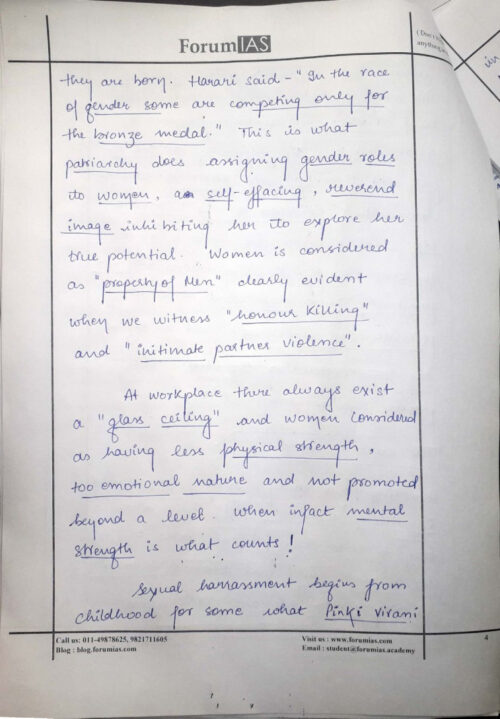 ( Don't
anything
in
Forum|IAS
they are born. Harari said - " In the race
of gender some are competing only for
the bronze medal." This is what
patriarchy does assigning gender roles
to women, a self-effacing, reverend
image inhibiting her to explore her
true potential. Women is considered
as "property of Men" clearly evident
when we witness "honour killing"
and "initimate partner violence".
At workplace there always exist
a "glass ceiling" and women considered
as having less physical strength,
too emotional nature and not promoted
beyond a level. When infact mental
strength is what counts!
Sexual harrassment begins from
childhood for some what Pinki Virani
Call us: 011-49878625, 9821711605 Visit us : www.forumias.com 4
Blog : blog.forumias.com Email : student@forumias.academy